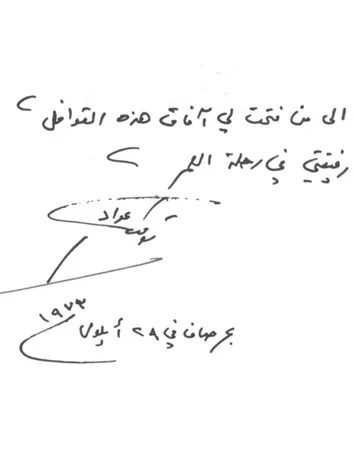 الى من فتحت لي آفاق هذه القوافل
رفيقتي في رحلة العمر
عواد
بحرصاف في ٢٨ أيلول ١٩٧٣